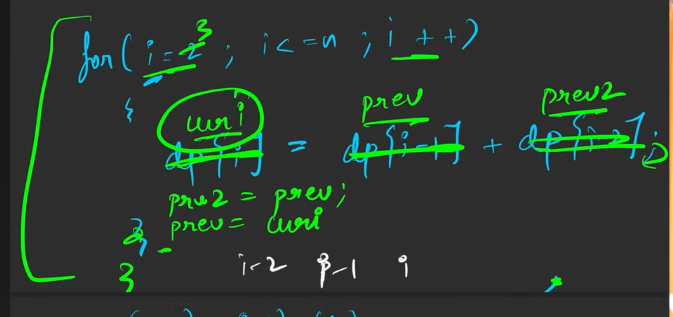 for( i=2 ; i<=n ; i++)
{
curi prev prev2
dp[i] = dp[i-1] + dp[i-2];
prev2 = prev;
prev= curi
}
}
i-2 i-1 i